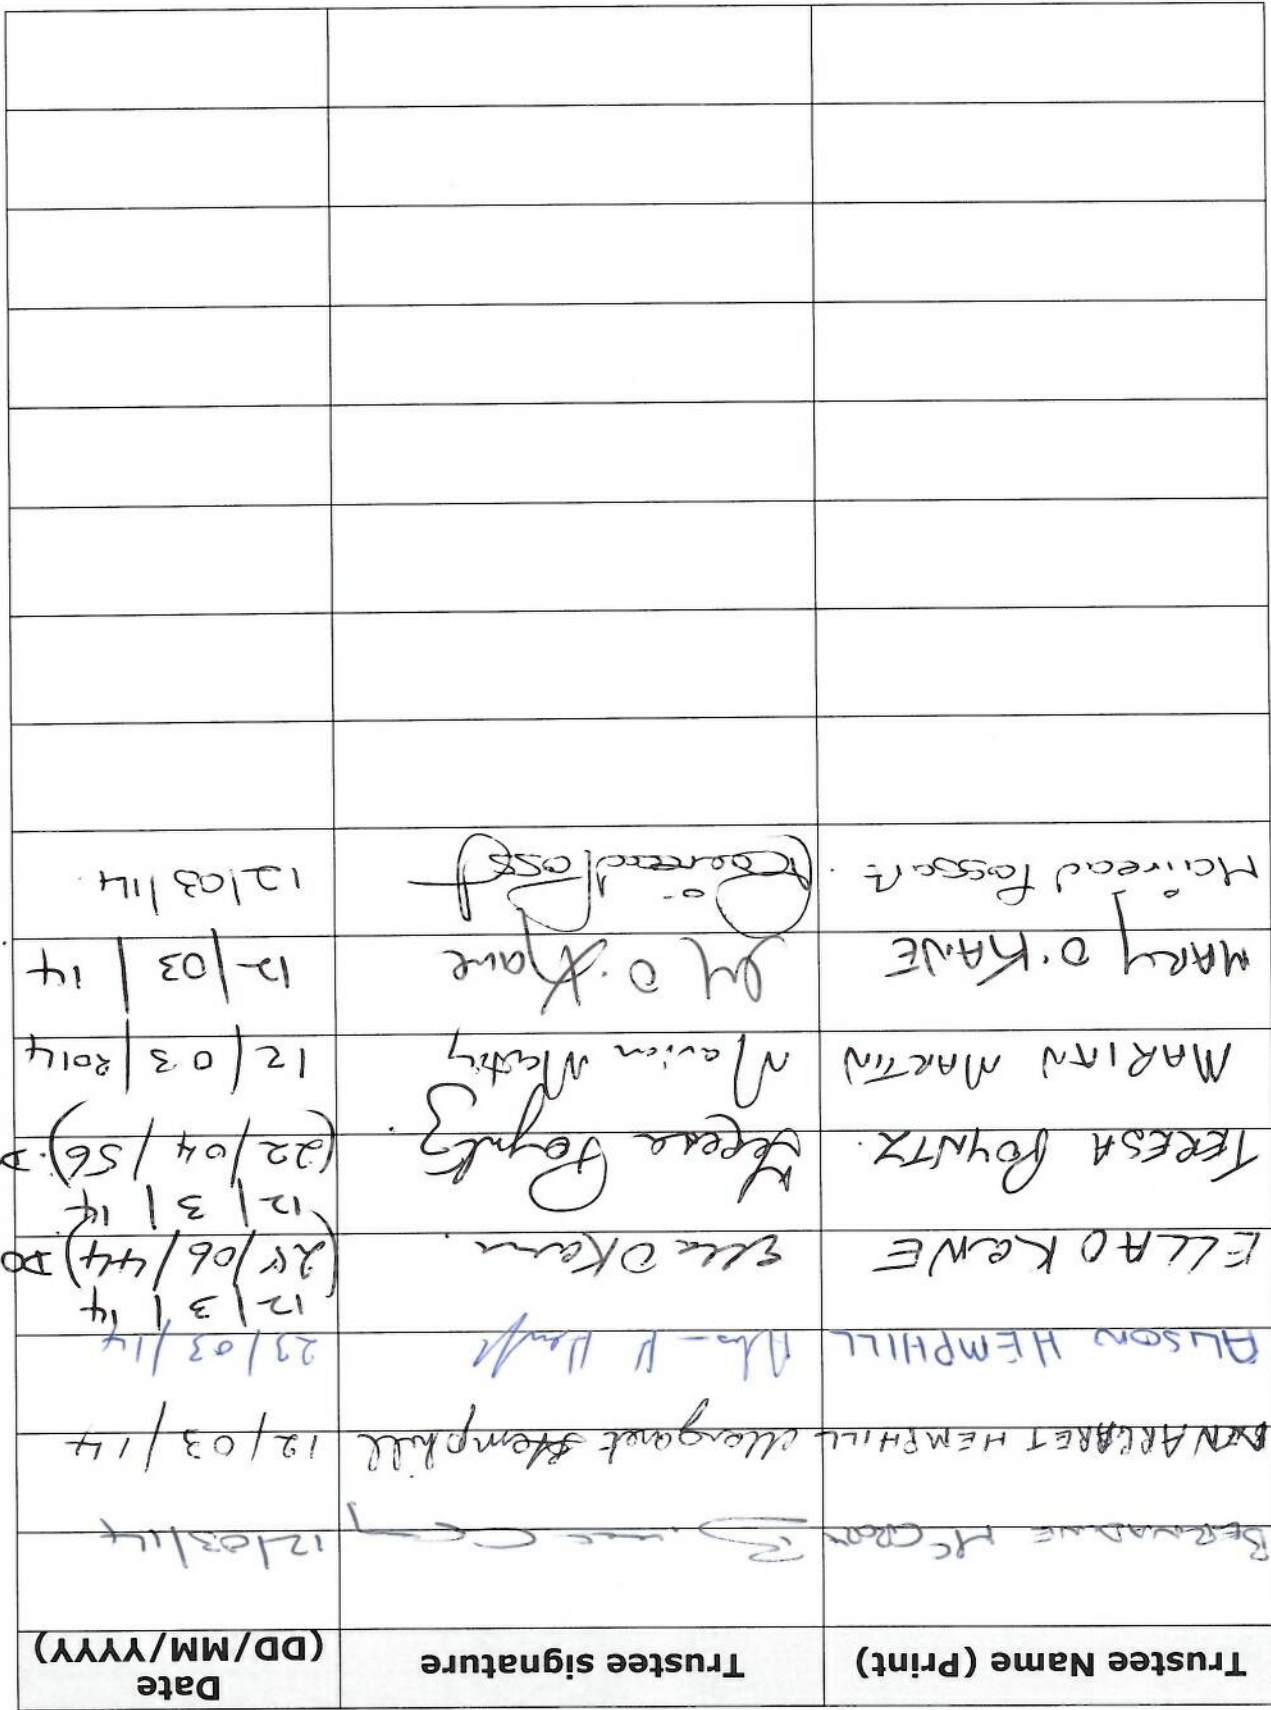 Trustee Name (Print) Trustee signature Date (DD/MM/YYYY)
BERNADINE McCRORY 12/03/14
MARGARET HEMPHILL Margaret Hemphill 12/03/14
ALISON HEMPHILL 23/03/14
12/3/14
ELLA O KANE Ella O Kane (28/06/44) DO
12/3/14
TERESA POYNTZ. Teresa Poyntz. (22/04/56) D
MARIAN MARTIN Marian Martin 12/03/2014
MARY O'KANE M O'Kane 12/03/14
Mairead 12/03/14